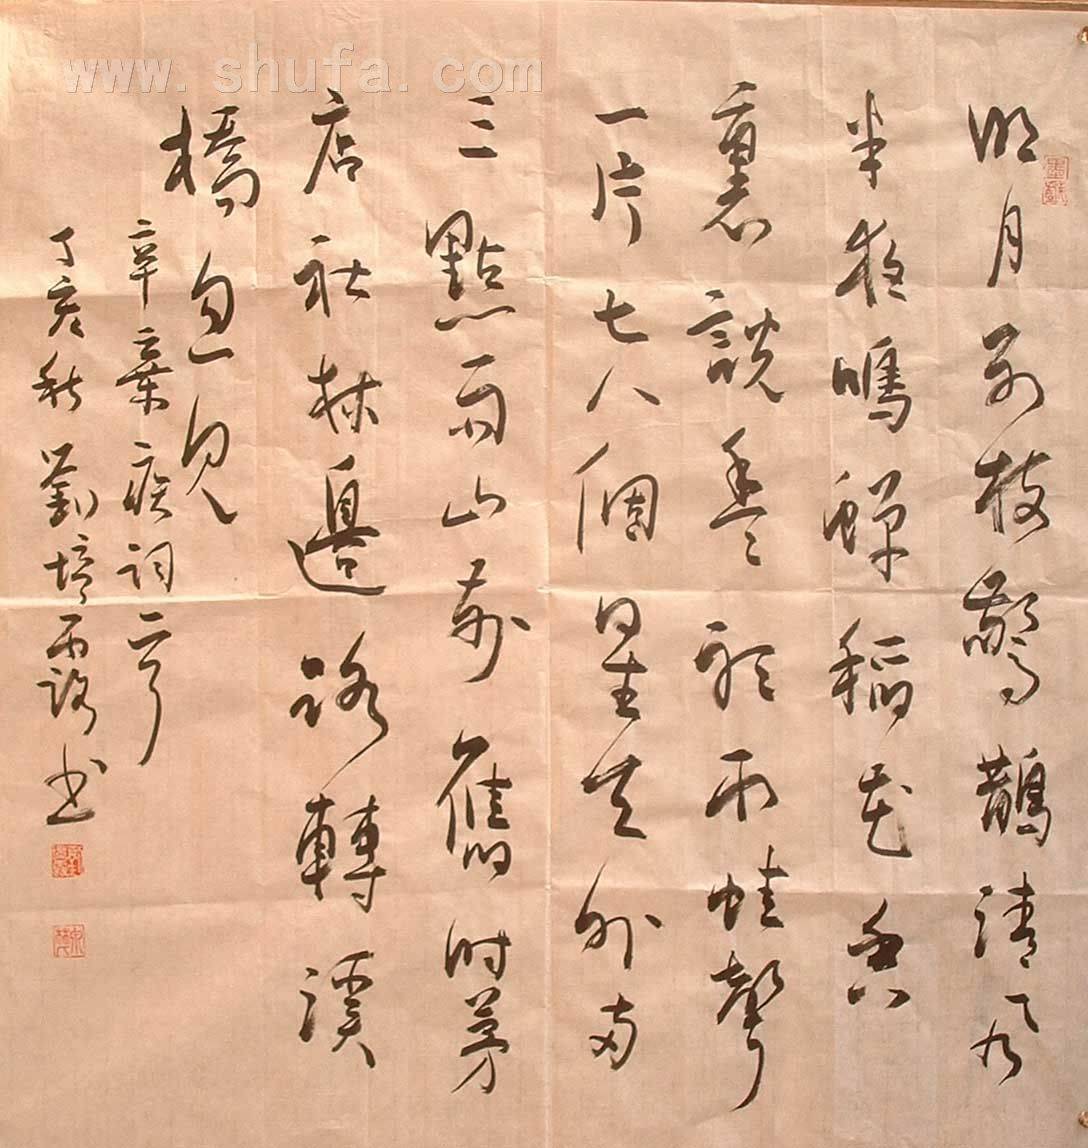 www.shufa.com
明月别枝驚鵲清風
半夜鳴蟬稻花香
裏說豐年聽取蛙聲
一片七八個星天外兩
三點雨山前舊時茅
店社林邊路轉溪
橋忽見
辛棄疾詞一首
丁亥秋劉培書